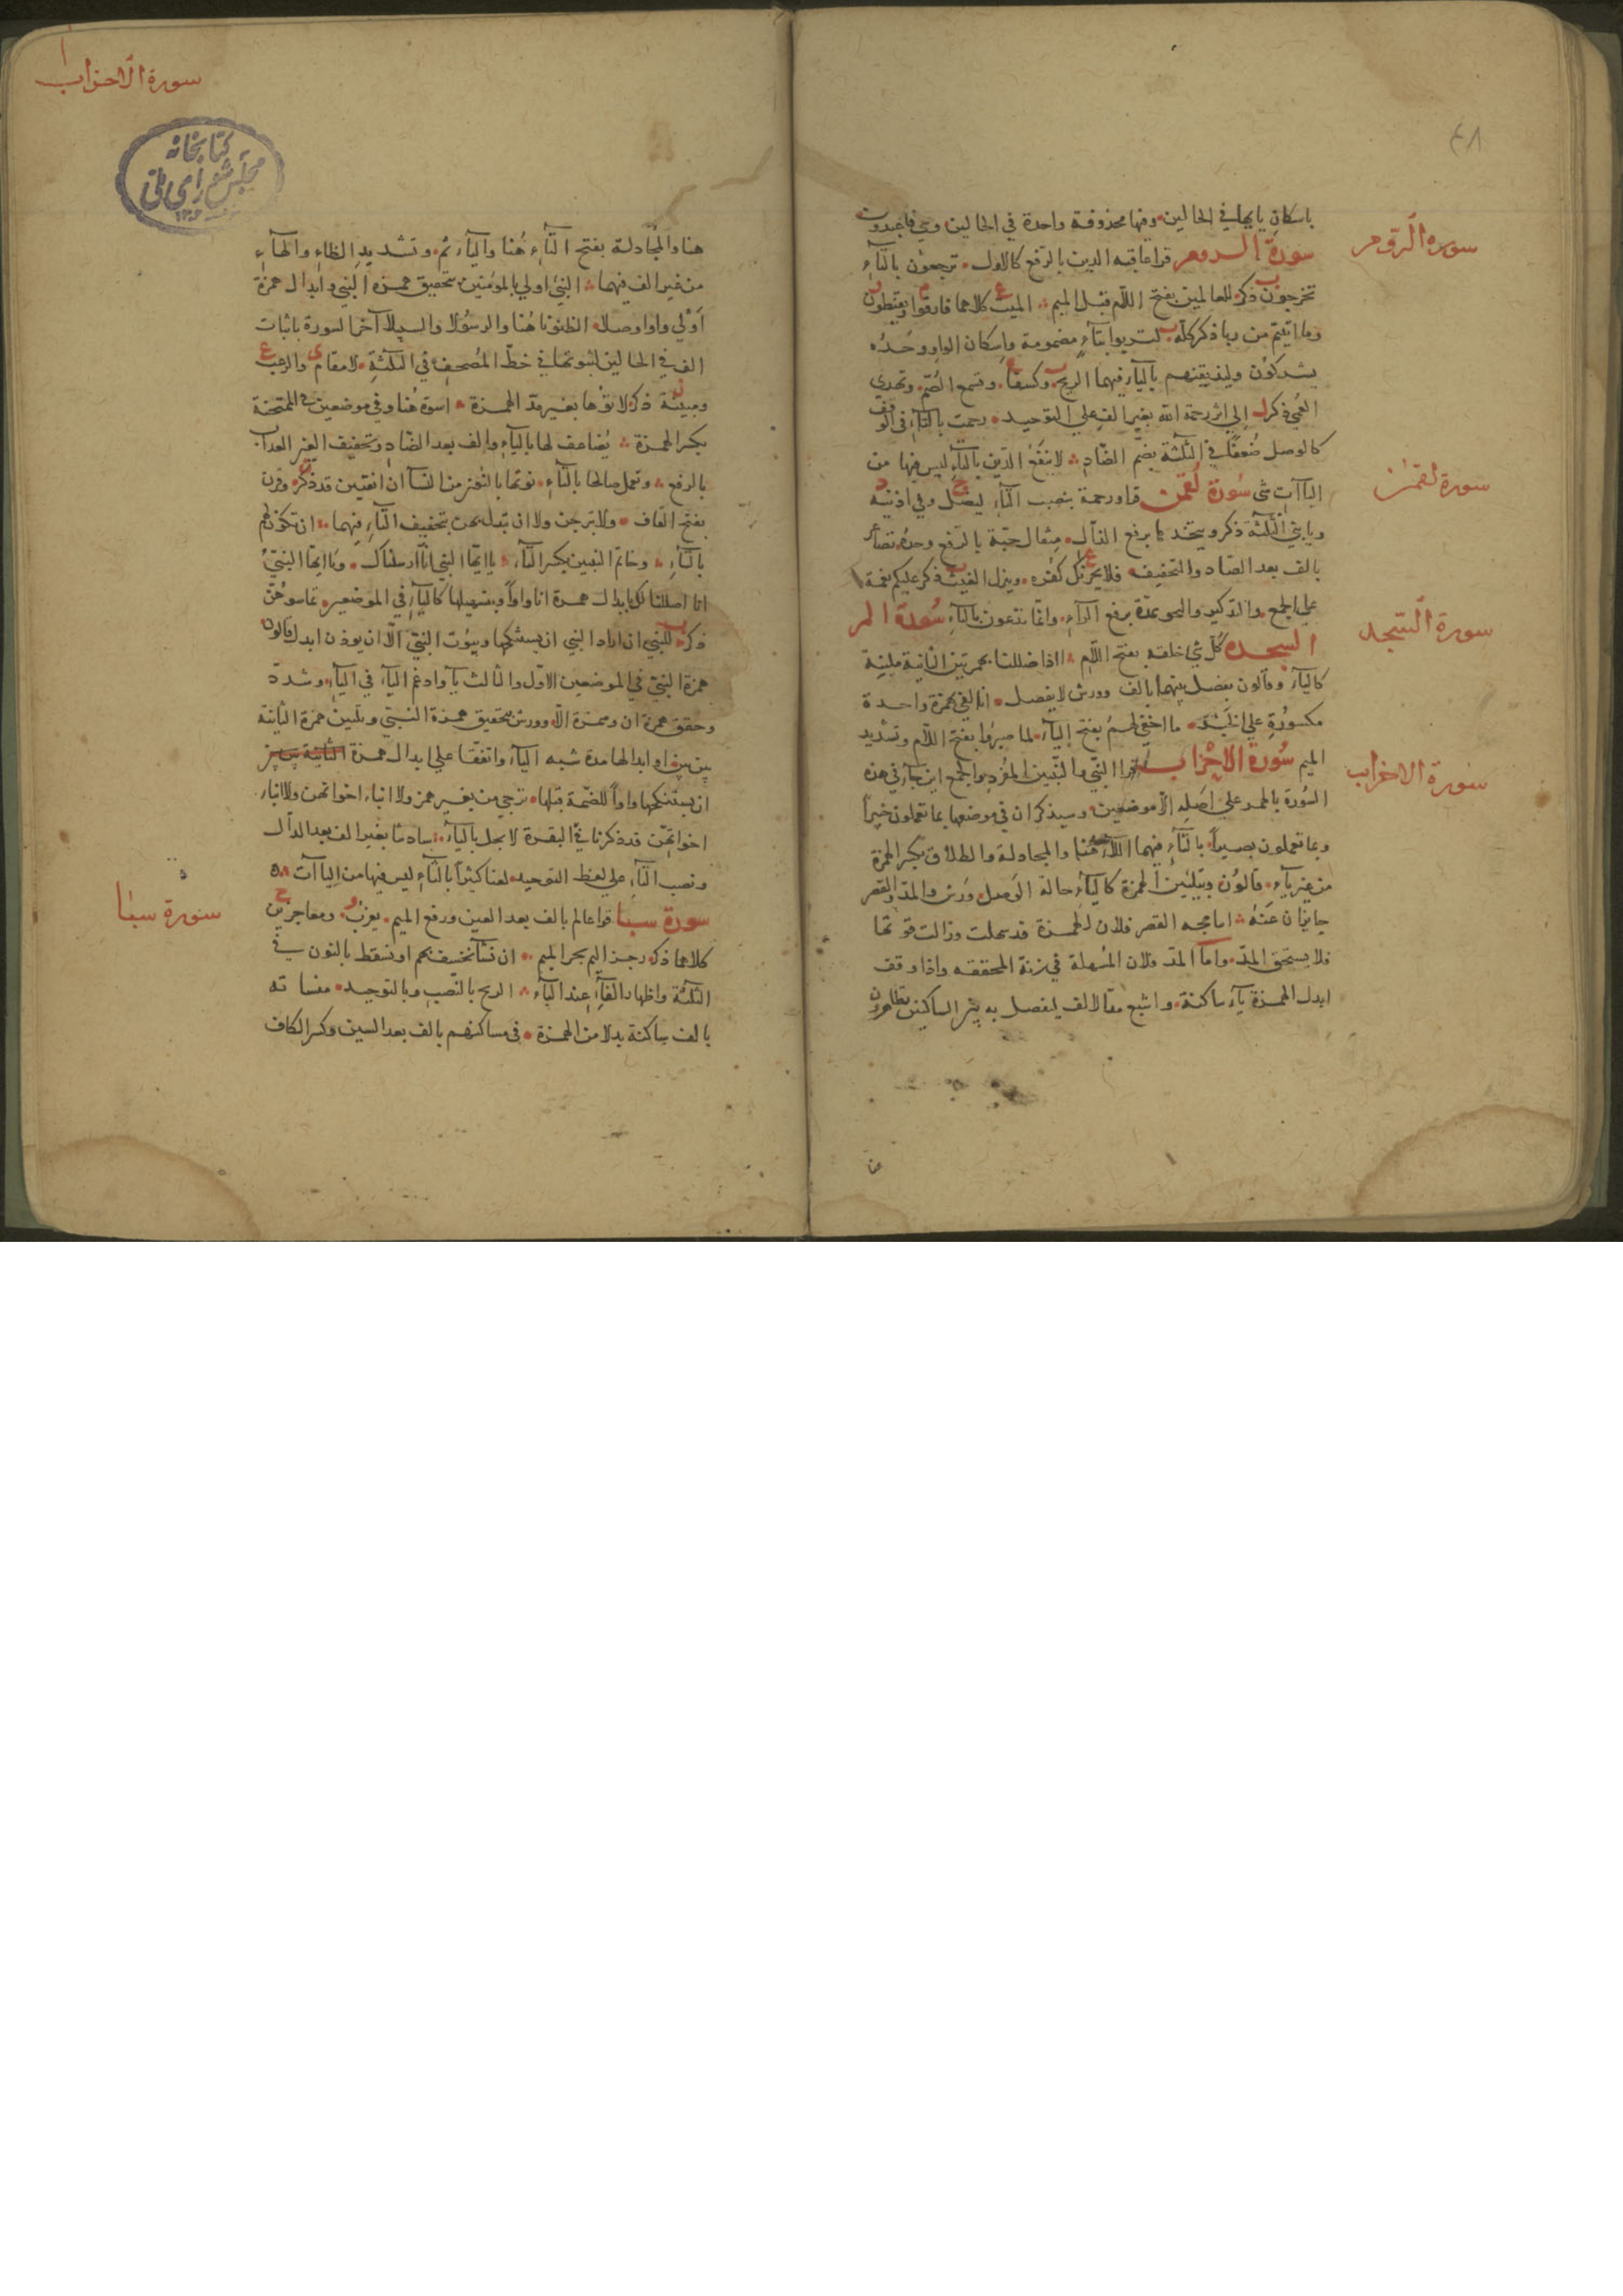 ٤٨
باسكان يائها في الحالين وفيها محذوفة واحدة في الحالين وهي فاعبدون
سورة الروم قرا عاقبة الذين بالرفع كالاول ترجعون بالتاء
تخرجون ذكر للعالمين بفتح اللام قبل الميم الميت كلاهما فارقوا ويقنطون
وما اتيتم من ربا ذكر كله لتربوا بتاء مضمومة واسكان الواو وحده
يشركون وليذيقنهم بالياء فيهما الريح وكسفا وتسمع الصم وتهدي
العمي ذكر الى اثر رحمة الله بغير الف على التوحيد رحمت بالتاء في الوقف
كالوصل ضعفا في الثلثة بضم الضاد لا تنفع الذين بالتاء ليس فيها من
الياآت شي سورة لقمن قرا ورحمة بنصب التاء ليضل وفي اذنيه
ويا بني الثلثة ذكر ويتخذها برفع الذال مثقال حبة بالرفع وحده تصاعر
بالف بعد الصاد والتخفيف فلا يحزنك كفره وينزل الغيث ذكر عليكم نعمه
على الجمع والتذكير والبحر يمده برفع الراء وانما تدعون بالتاء سورة الم
السجدة كل شي خلقه بفتح اللام ااذا ضللنا بهمزتين الثانية ملينة
كالياء وقالون يفصل بينهما بالف وورش لا يفصل انا لفي بهمزة واحدة
مكسورة على الخبر ما اخفي لهم بفتح الياء لما صبروا بفتح اللام وتشديد
الميم سورة الاحزاب قرا النبي والنبيين المفرد والجمع اين جاء في هذه
السورة بالهمز على اصله الا موضعين وسيذكران في موضعها بما تعملون خبيرا
وبما تعملون بصيرا بالتاء فيهما اللاء هنا والمجادلة والطلاق بكسر الهمزة
من غير ياء قالون وبتليين الهمزة كالياء حالة الوصل ورش والمد والقصر
جايزان عنه اما مجه القصر فلان الهمزة قد سهلت وزالت قوتها
فلا يستحق المد واما المد فلان المسهلة في زنة المحققة واذا وقف
ابدل الهمزة ياء ساكنة واشبع مد الالف ليفصل به بين الساكنين تظاهرون
سورة الروم
سورة لقمن
سورة السجده
سورة الاحزاب
سورة الاحزاب
كتابخانه
مجلس شوراى ملى
هنا والمجادلة بفتح التاء هنا والياء ثم وتشديد الظاء والهاء
من غير الف فيهما النبي اولى بالمؤمنين بتحقيق همزة النبي وابدال همزة
اولى واوا وصلا الظنونا هنا والرسولا والسبيلا آخر السورة باثبات
الف في الحالين لثبوتها في خط المصحف في الثلثة لا مقام والرعب
ومبينة ذكر لاتوها بغير مد الهمزة اسوة هنا وفي موضعين في الممتحنة
بكسر الهمزة يضاعف لها بالياء والف بعد الضاد وتخفيف العين العذاب
بالرفع وتعمل صالحا بالتاء نوتها بالنون من النسآ ان اتقيتن قد ذكر وقرن
بفتح القاف ولا تبرجن ولا ان تبدل بهن بتخفيف التاء فيهما ان تكون لهم
بالتاء وخاتم النبيين بكسر التاء يا ايها النبي انا ارسلناك ويا ايها النبي
انا احللنا لك بابدال همزة انا واوا وبتسهيلها كالياء في الموضعين تماسوهن
ذكر للنبي ان اراد النبي ان يستنكحها وبيوت النبي الا ان يوذن ابدل قالون
همزة النبي في الموضعين الاول والثالث ياء وادغم الياء في الياء وشدد
وحقق همزة ان وهمزة الا وورش بتحقيق همزة النبي وتليين همزة الثانية
بين بين او ابدالها مدة شبه الياء واتفقا على ابدال همزة الثانية بين
ان يستنكحها واوا للضمة قبلها ترجي من بغير همز ولا ابناء اخوانهن ولا ابناء
اخواتهن قد ذكرنا في البقرة لا يحل بالياء ساداتنا بغير الف بعد الدال
ونصب التاء على لفظ التوحيد لعنا كثيرا بالثاء ليس فيها من الياآت
سورة سبا قرا عالم بالف بعد العين ورفع الميم يعزب ومعاجزين
كلاهما ذكر رجز اليم بجر الميم ان نشأ نخسف بهم او نسقط بالنون في
الثلثة واظهار الفاء عند الباء الريح بالنصب وبالتوحيد منساته
بالف ساكنة بدلا من الهمزة في مساكنهم بالف بعد السين وكسر الكاف
سورة سبا